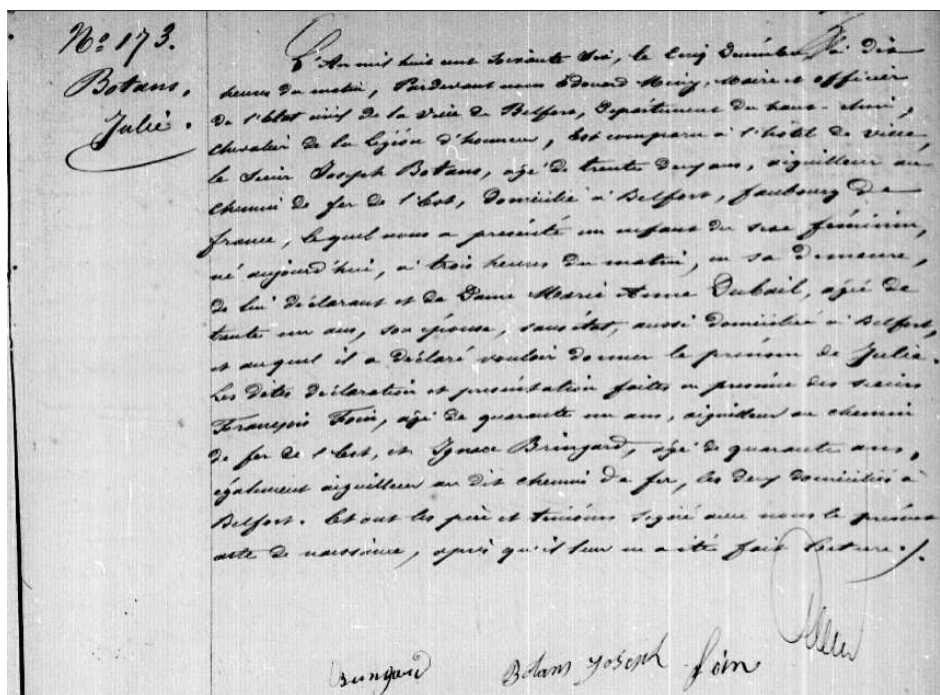 No 173.
Botans,
Julie.
L'An mil huit cent soixante six, le cinq Décembre, à dix
heures du matin, Pardevant nous Edouard Meny, Maire et officier
de l'état civil de la ville de Belfort, Département du haut-Rhin,
chevalier de la légion d'honneur, Est comparu à l'hôtel de ville,
le Sieur Joseph Botans, agé de trente deux ans, aiguilleur au
chemin de fer de l'Est, domicilié à Belfort, faubourg de
france, lequel nous a présenté un enfant du sexe féminin,
né aujourd'hui, à trois heures du matin, en sa demeure,
de lui déclarant et de Dame Marie Anne Dubail, agée de
trente un ans, son épouse, sans état, aussi domiciliée à Belfort,
et auquel il a déclaré vouloir donner le prénom de Julie.
Les dites déclaration et présentation faites en présence des sieurs
François Foin, agé de quarante un ans, aiguilleur au chemin
de fer de l'Est, et Ignace Bringard, agé de quarante ans,
également aiguilleur au dit chemin de fer, les deux domiciliés à
Belfort. Et ont les père et témoins signé avec nous le présent
acte de naissance, après qu'il leur en a été fait lecture ./.
Bringard Botans Joseph foin